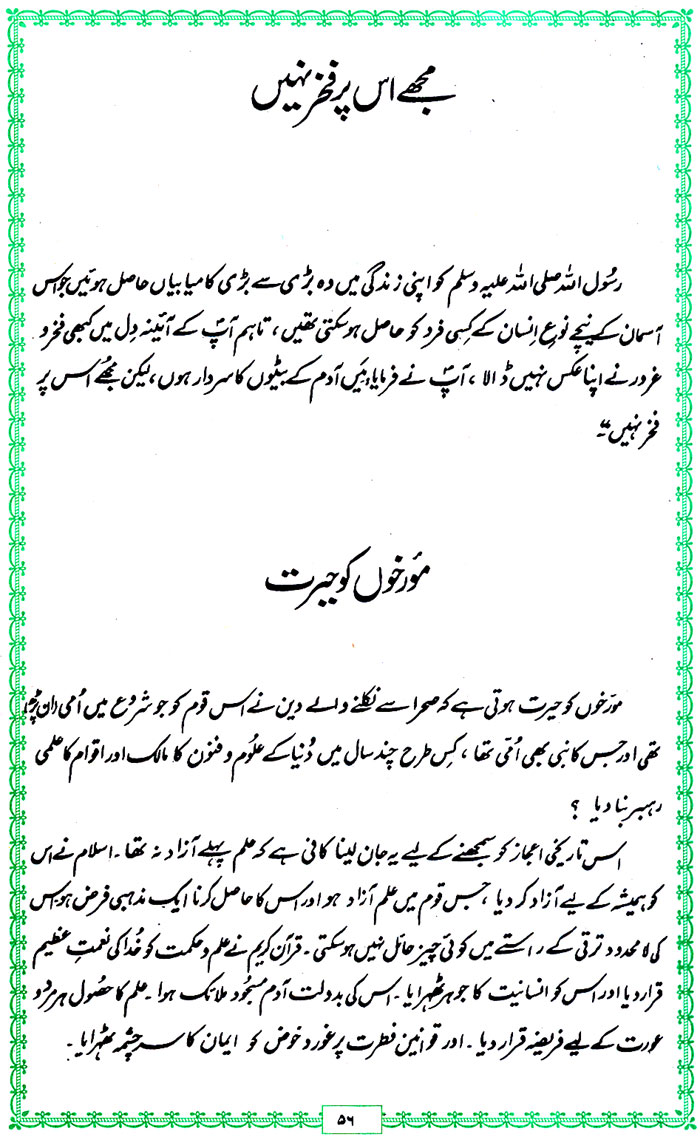 مجھے اس پر فخر نہیں
رسُول اللہ صلی اللہ علیہ وسلم کو اپنی زندگی میں وہ بڑی سے بڑی کامیابیاں حاصل ہوئیں جو اس
آسمان کے نیچے نوعِ اِنسان کے کِسی فرد کو حاصل ہو سکتی تھیں ، تاہم آپؐ کے آئینہ دِل میں کبھی فخر و
غرور نے اپنا عکس نہیں ڈالا ، آپؐ نے فرمایا "میَں آدم کے بیٹوں کا سردار ہوں ، لیکن مجُھے اس پر
فخر نہیں "۔
مؤرخوں کو حیرت
مورّخوں کو حیرت ہوتی ہے کہ صحرا سے نکلنے والے دین نے اس قوم کو جو شروع میں اُمی (ان پڑھ)
تھی اور جس کا نبی بھی اُمّی تھا ، کِس طرح چند سال میں دُنیا کے علُوم و فنوُن کا مالک اور اقوام کا علمی
رہبر بنا دیا ؟
اس تاریخی اعجاز کو سمجھنے کے لیے یہ جان لینا کافی ہے کہ علم پہلے آزاد نہ تھا ۔ اسلام نے اس
کو ہمیشہ کے لیے آزاد کر دیا ، جس قوم میں علم آزاد ہو اور اس کا حاصل کرنا ایک مذہبی فرض ہو اس
کی لا محدود ترقی کے راستے میں کوئی چیز حائل نہیں ہو سکتی ۔ قرآن کریم نے علم و حکمت کو خُدا کی نعمتِ عظیم
قرار دیا اور اس کو انسانیت کا جوہر ٹھہرایا ۔ اس کی بدولت آدم مسجُود ملائک ہوا ۔ علم کا حصُول ہر مرد و
عورت کے لیے فریضہ قرار دیا ۔ اور قوانین فطرت پر غور و خوض کو ایمان کا سرچشمہ ٹھہرایا ۔
۵۶